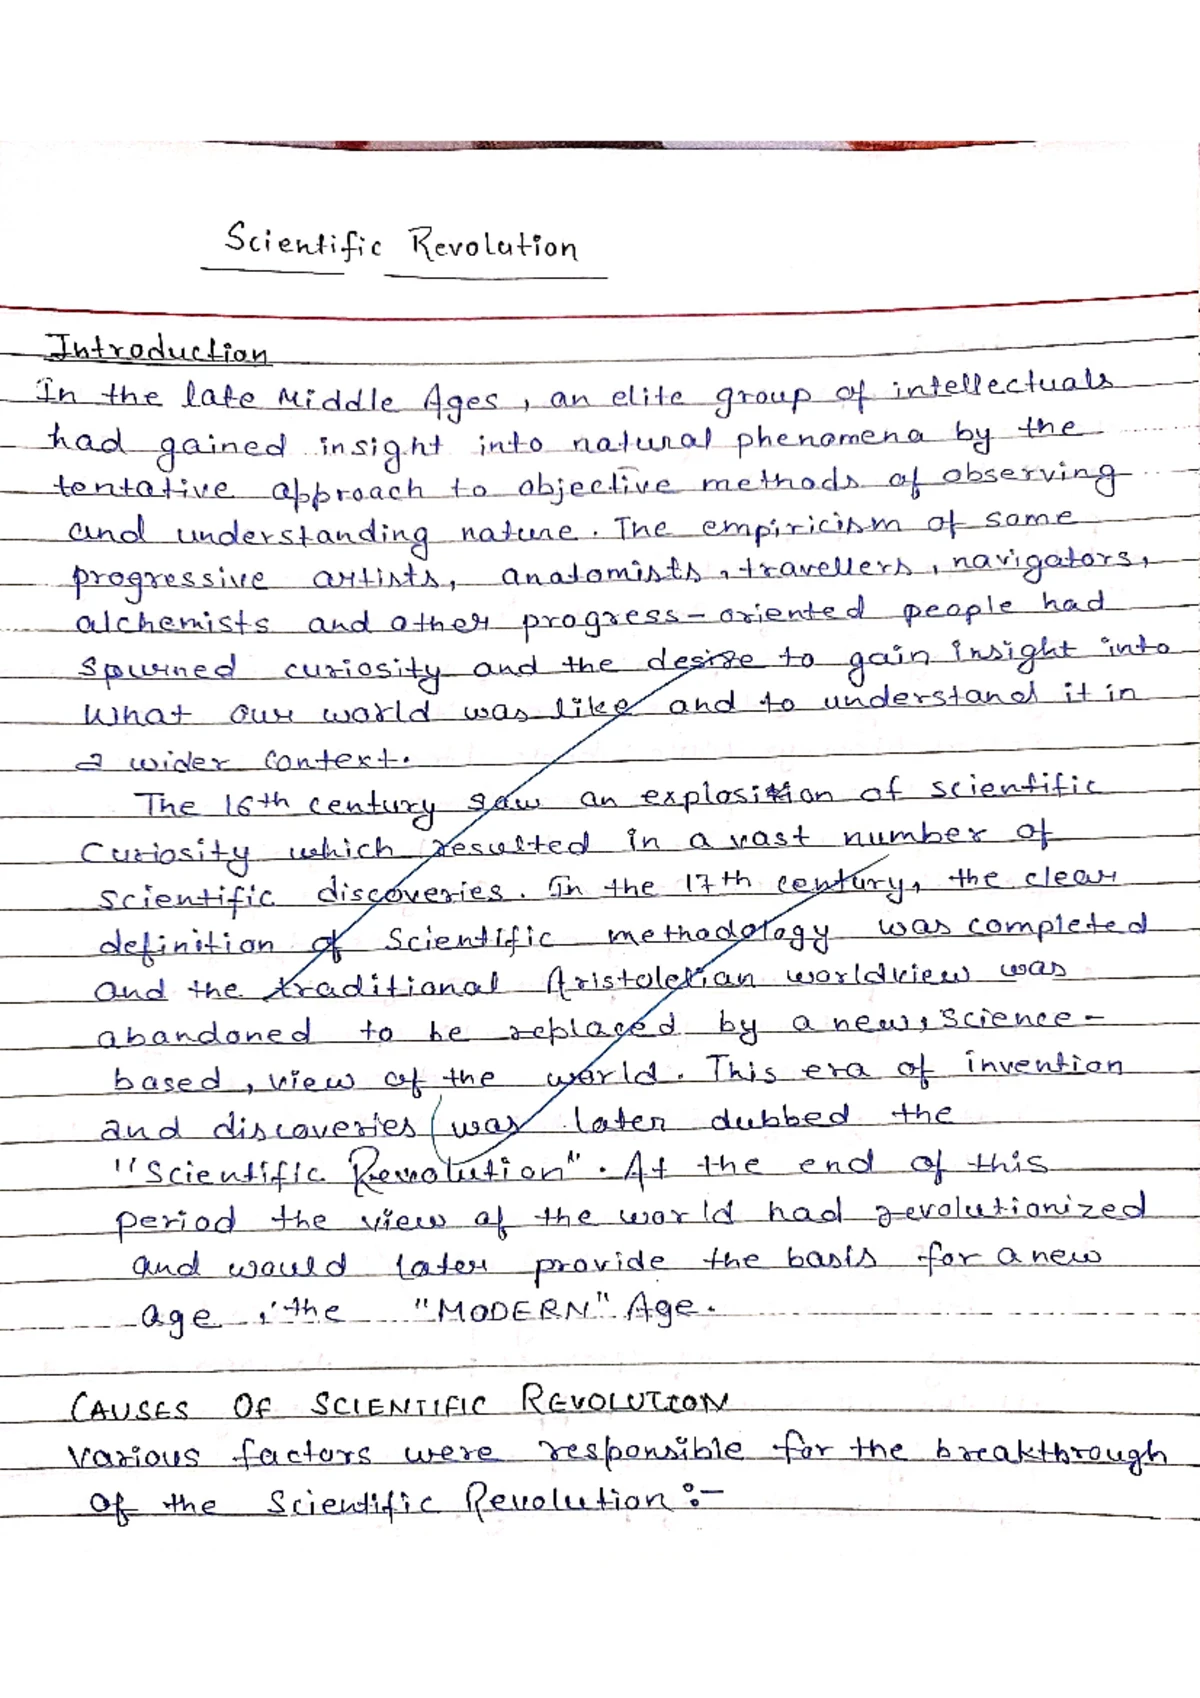 Scientific Revolution
Introduction
In the late Middle Ages, an elite group of intellectuals
had gained insight into natural phenomena by the
tentative approach to objective methods of observing
and understanding nature. The empiricism of some
progressive artists, anatomists, travellers, navigators,
alchemists and other progress-oriented people had
spurned curiosity and the desire to gain insight into
What our world was like and to understand it in
a wider context.
The 16th century saw an explosition of scientific
Curiosity which resulted in a vast number of
scientific discoveries. In the 17th century, the clear
definition of Scientific methodology was completed
and the traditional Aristolelian worldview was
abandoned to be replaced by a new, science-
based, view of the world. This era of invention
and discoveries was later dubbed the
"Scientific Revolution". At the end of this
period the view of the world had revolutionized
and would later provide the basis for a new
age, the "MODERN" Age.
CAUSES OF SCIENTIFIC REVOLUTION
Various factors were responsible for the breakthrough
of the Scientific Revolution :-